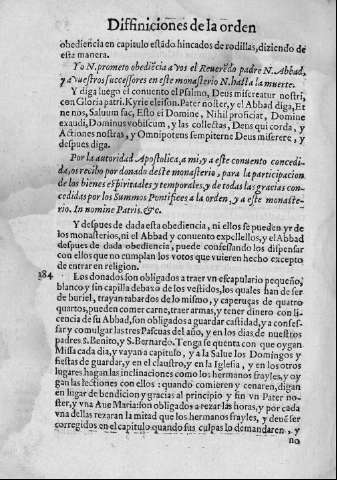 Diffiniciones de la orden
obediẽcia en capitulo estãdo hincados de rodillas, diziendo de
esta manera.
Yo N. prometo obediẽcia a vos el Reuerẽdo padre N. Abbad,
y a vuestros successores en este monasterio N. hasta la muerte.
Y diga luego el conuento el Psalmo, Deus misereatur nostri,
con Gloria patri. Kyrie eleison. Pater noster, y el Abbad diga, Et
ne nos, Saluum fac, Esto ei Domine, Nihil proficiat, Domine
exaudi, Dominus vobiscum, y las collectas, Deus qui corda, y
Actiones nostras, y Omnipotens sempiterne Deus miserere, y
despues diga.
Por la autoridad Apostolica, a mi, y a este conuento concedi-
da, os recibo por donado deste monasterio, para la participacion
de los bienes espirituales y temporales, y de todas las gracias con-
cedidas por los Summos Pontifices a la orden, y a este monaste-
rio. In nomine Patris. &c.
Y despues de dada esta obediencia, ni ellos se pueden yr de
los monasterios, ni el Abbad y conuento expellellos, y el Abbad
despues de dada obediencia, puede confessando los dispensar
con ellos que no cumplan los votos que vuieren hecho excepto
de entrar en religion.
284 Los donados son obligados a traer vn escapulario pequeño,
blanco y sin capilla debaxo de los vestidos, los quales han de ser
de buriel, trayan tabardos de lo mismo, y caperuças de quatro
quartos, pueden comer carne, traer armas, y tener dinero con li-
cencia de su Abbad, son obligados a guardar castidad, y a confes-
sar y comulgar las tres Pascuas del año, y en los dias de nuestros
padres S. Benito, y S. Bernardo. Tenga se quenta con que oygan
Missa cada dia, y vayan a capitulo, y a la Salue los Domingos y
fiestas de guardar, y en el claustro, y en la Iglesia, y en los otros
lugares hagan las inclinaciones como los hermanos frayles, y oy
gan las lectiones con ellos: quando comieren y cenaren, digan
en lugar de bendicion y gracias al principio y fin vn Pater no-
ster, y vna Aue Maria: son obligados a rezar las horas, y por cada
vna dellas rezaran la mitad que los hermanos frayles, y deuẽ ser
corregidos en el capitulo quando sus culpas lo demandaren, y
no